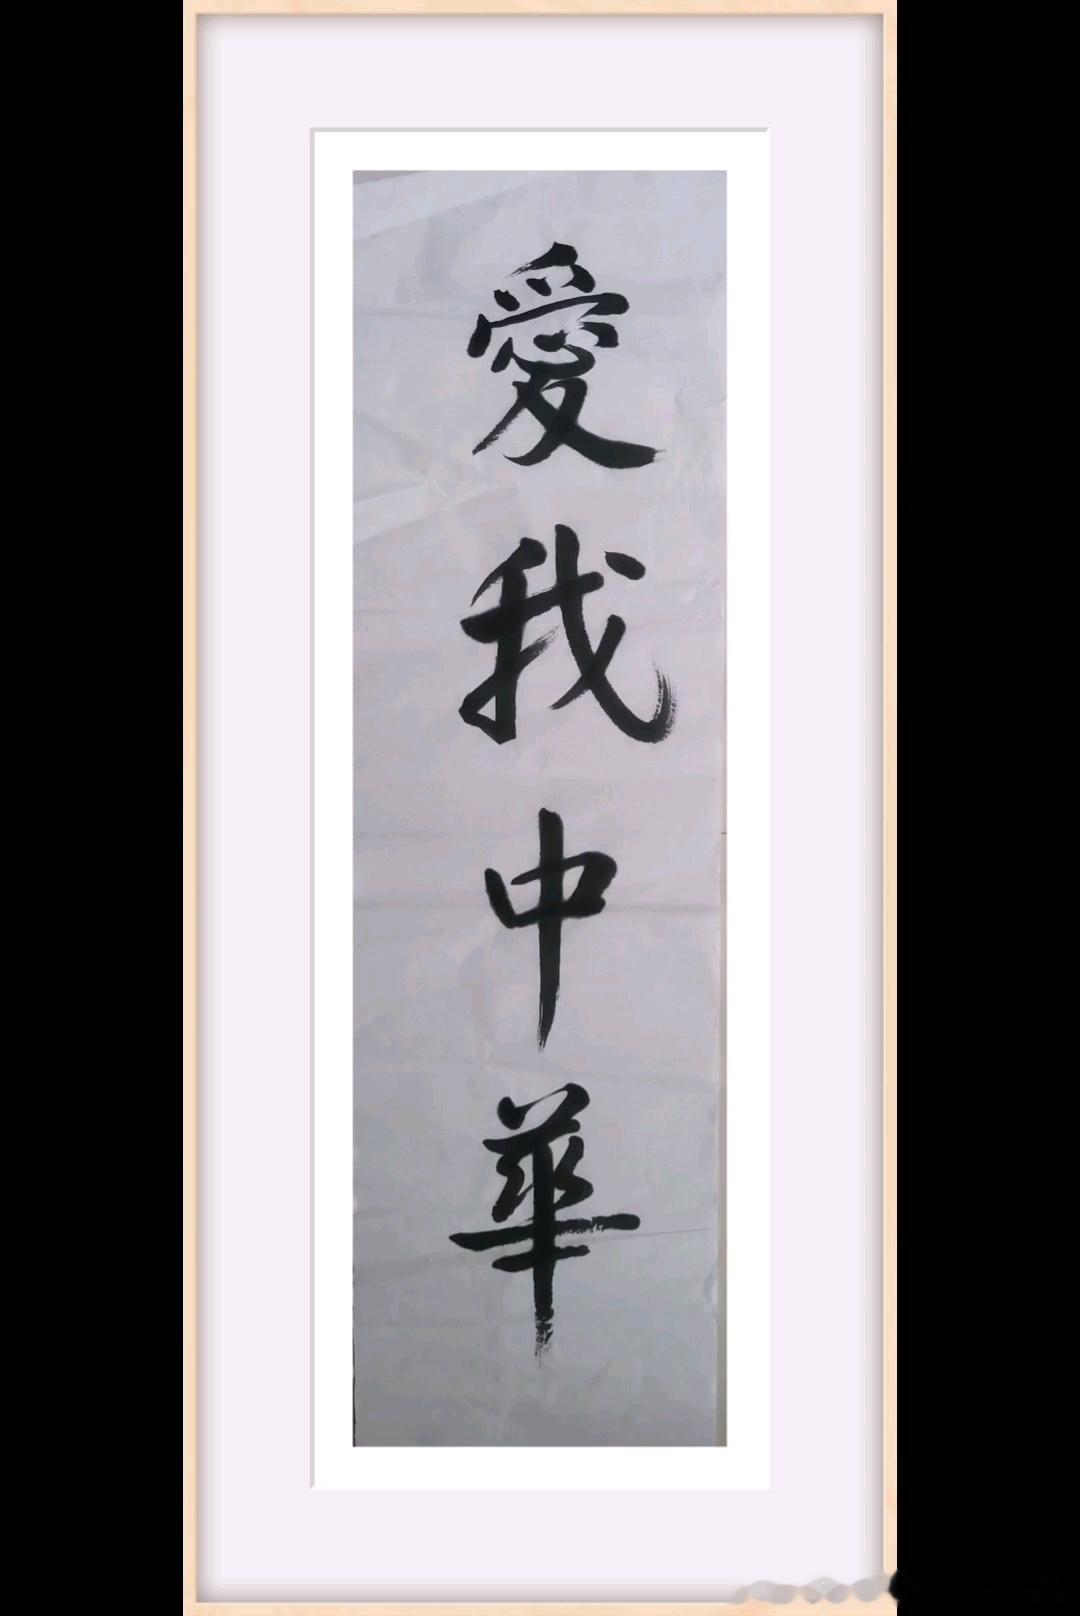 愛我中華